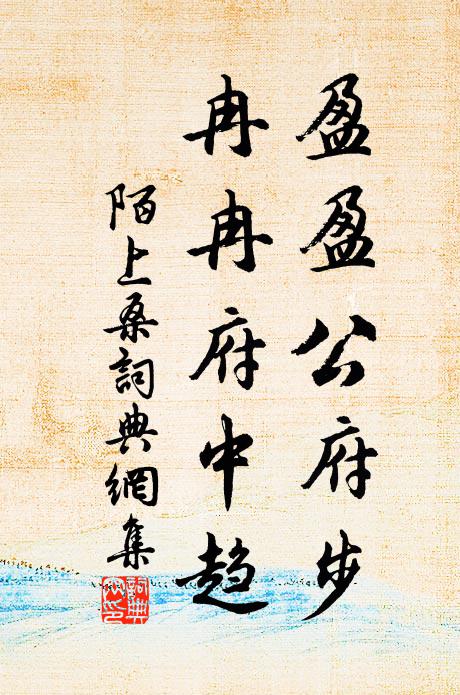 盈盈公府步
冉冉府中趋
陌上桑詞典網集